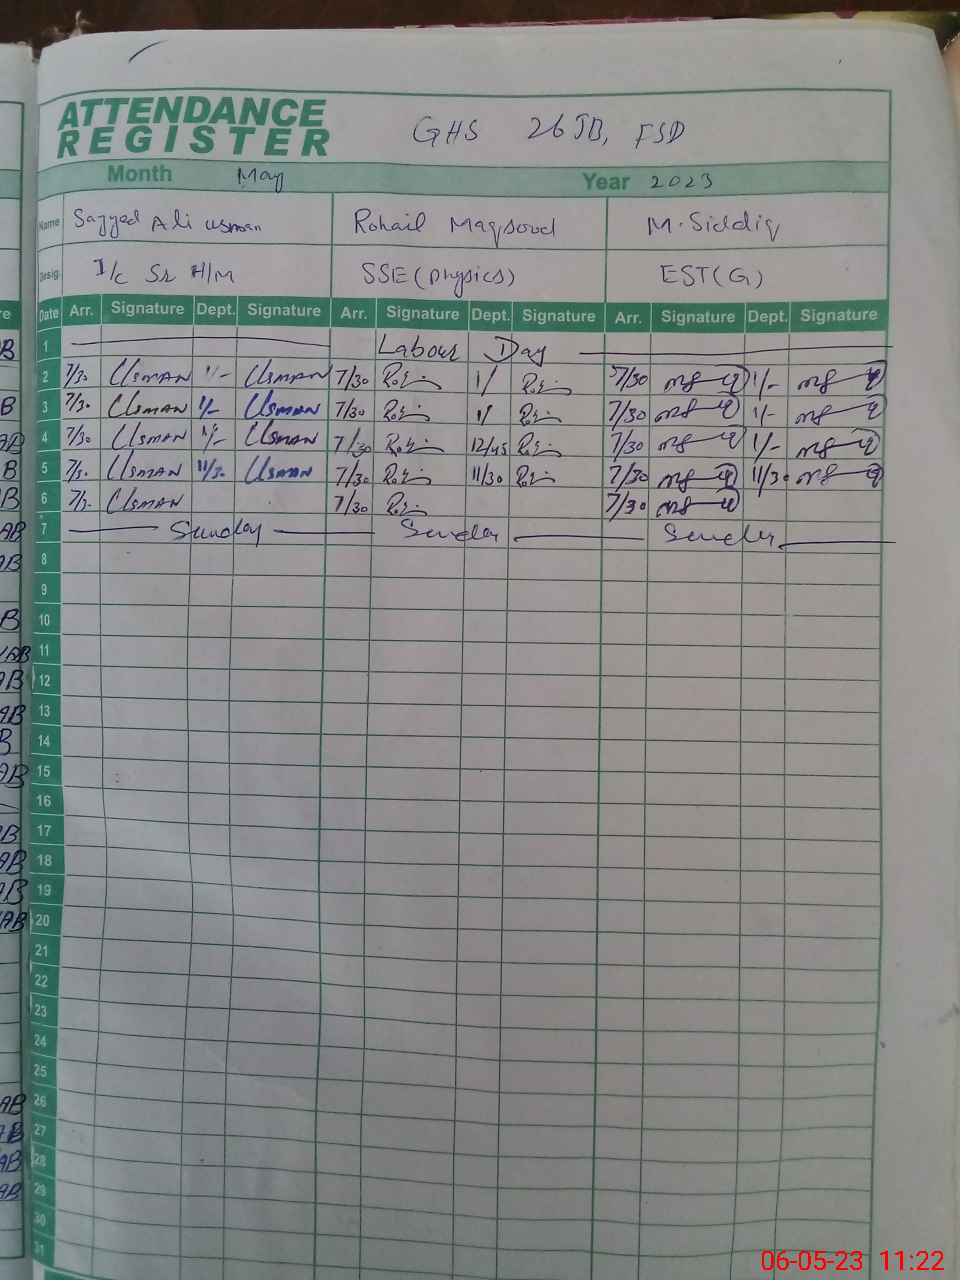 ATTENDANCE
REGISTER
GHS 26 JB, FSD
Month May Year 2023
Name Sayyed Ali Usman Rohail Maqsood M. Siddiq
Desig. I/c Sr H/M SSE (Physics) EST (G)
Date Arr. Signature Dept. Signature Arr. Signature Dept. Signature Arr. Signature Dept. Signature
1 Labour Day
2 7/30 Usman 1/- Usman 7/30 1/ 7/30 1/-
3 7/30 Usman 1/- Usman 7/30 1/ 7/30 1/-
4 7/30 Usman 1/- Usman 7/30 12/45 7/30 1/-
5 7/30 Usman 11/30 Usman 7/30 11/30 7/30 11/30
6 7/30 Usman 7/30 7/30
7 Sunday Sunday Sunday
8
9
10
11
12
13
14
15
16
17
18
19
20
21
22
23
24
25
26
27
28
29
30
31
06-05-23 11:22